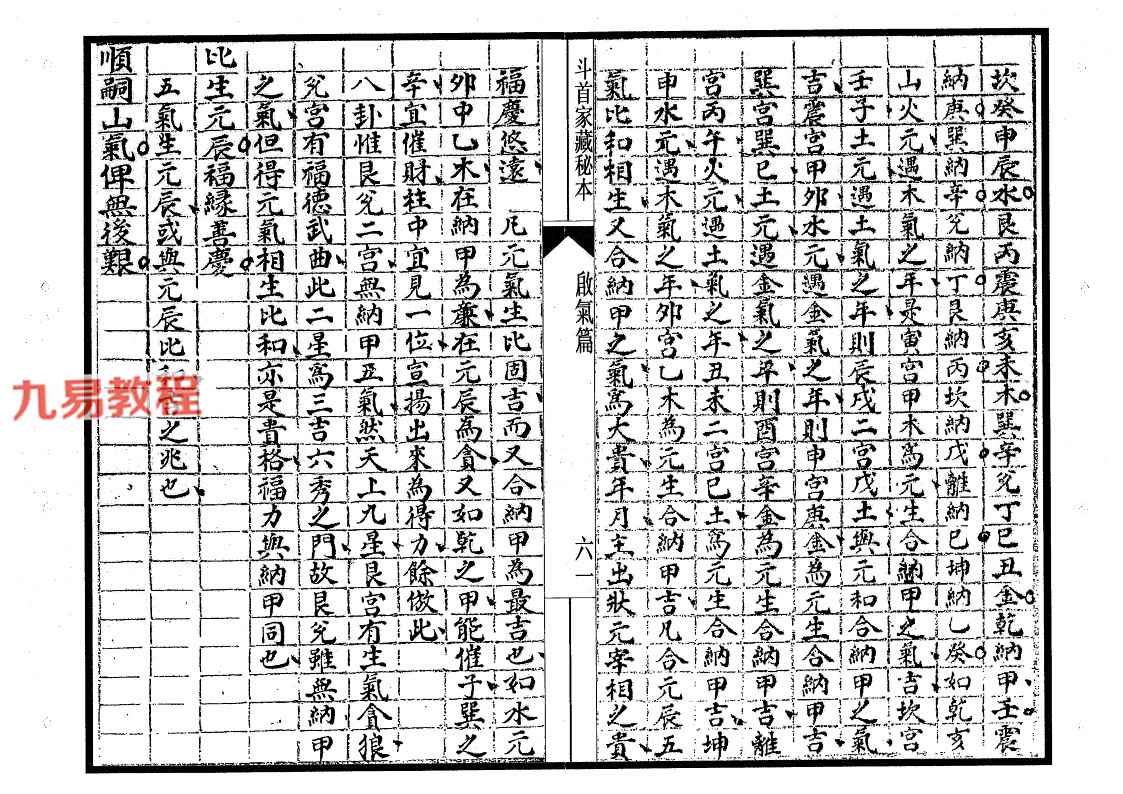 坎癸申辰水艮丙震庚亥未木巽辛兌丁巳丑金乾納甲壬震
納庚巽納辛兌納丁艮納丙坎納戊離納巳坤納乙癸如乾亥
山火元遇木氣之年是寅宮甲木爲元生合納甲之氣吉坎宮
壬子土元遇土氣之年則辰戌二宮戊土與元和合納甲之氣
吉震宮甲卯水元遇金氣之年則申宮庚金為元生合納甲吉
巽宮巽巳土元遇金氣之年則酉宮辛金為元生合納甲吉離
宮丙午火元遇土氣之年丑未二宮巳土爲元生合納甲吉坤
申水元遇木氣之年卯宮乙木為元生合納甲吉凡合元辰五
氣比和相生又合納甲之氣爲大貴年月主出狀元宰相之貴
斗首家藏秘本
啟氣篇
六一
福慶悠遠 凡元氣生比固吉而又合納甲為最吉也如水元
卯中乙木在納甲為廉在元辰為貪又如乾之甲能催子巽之
辛宜催財柱中宜見一位宣揚出來為得力餘倣此
八卦惟艮兌二宮無納甲五氣然天上九星艮宮有生氣貪狼
兌宮有福德武曲此二星爲三吉六秀之門故艮兌雖無納甲
之氣但得元氣相生比和亦是貴格福力與納甲同也
比生元辰福緣善慶
五氣生元辰或與元辰比和吉之兆也
順嗣山氣俾無後艱
九易教程